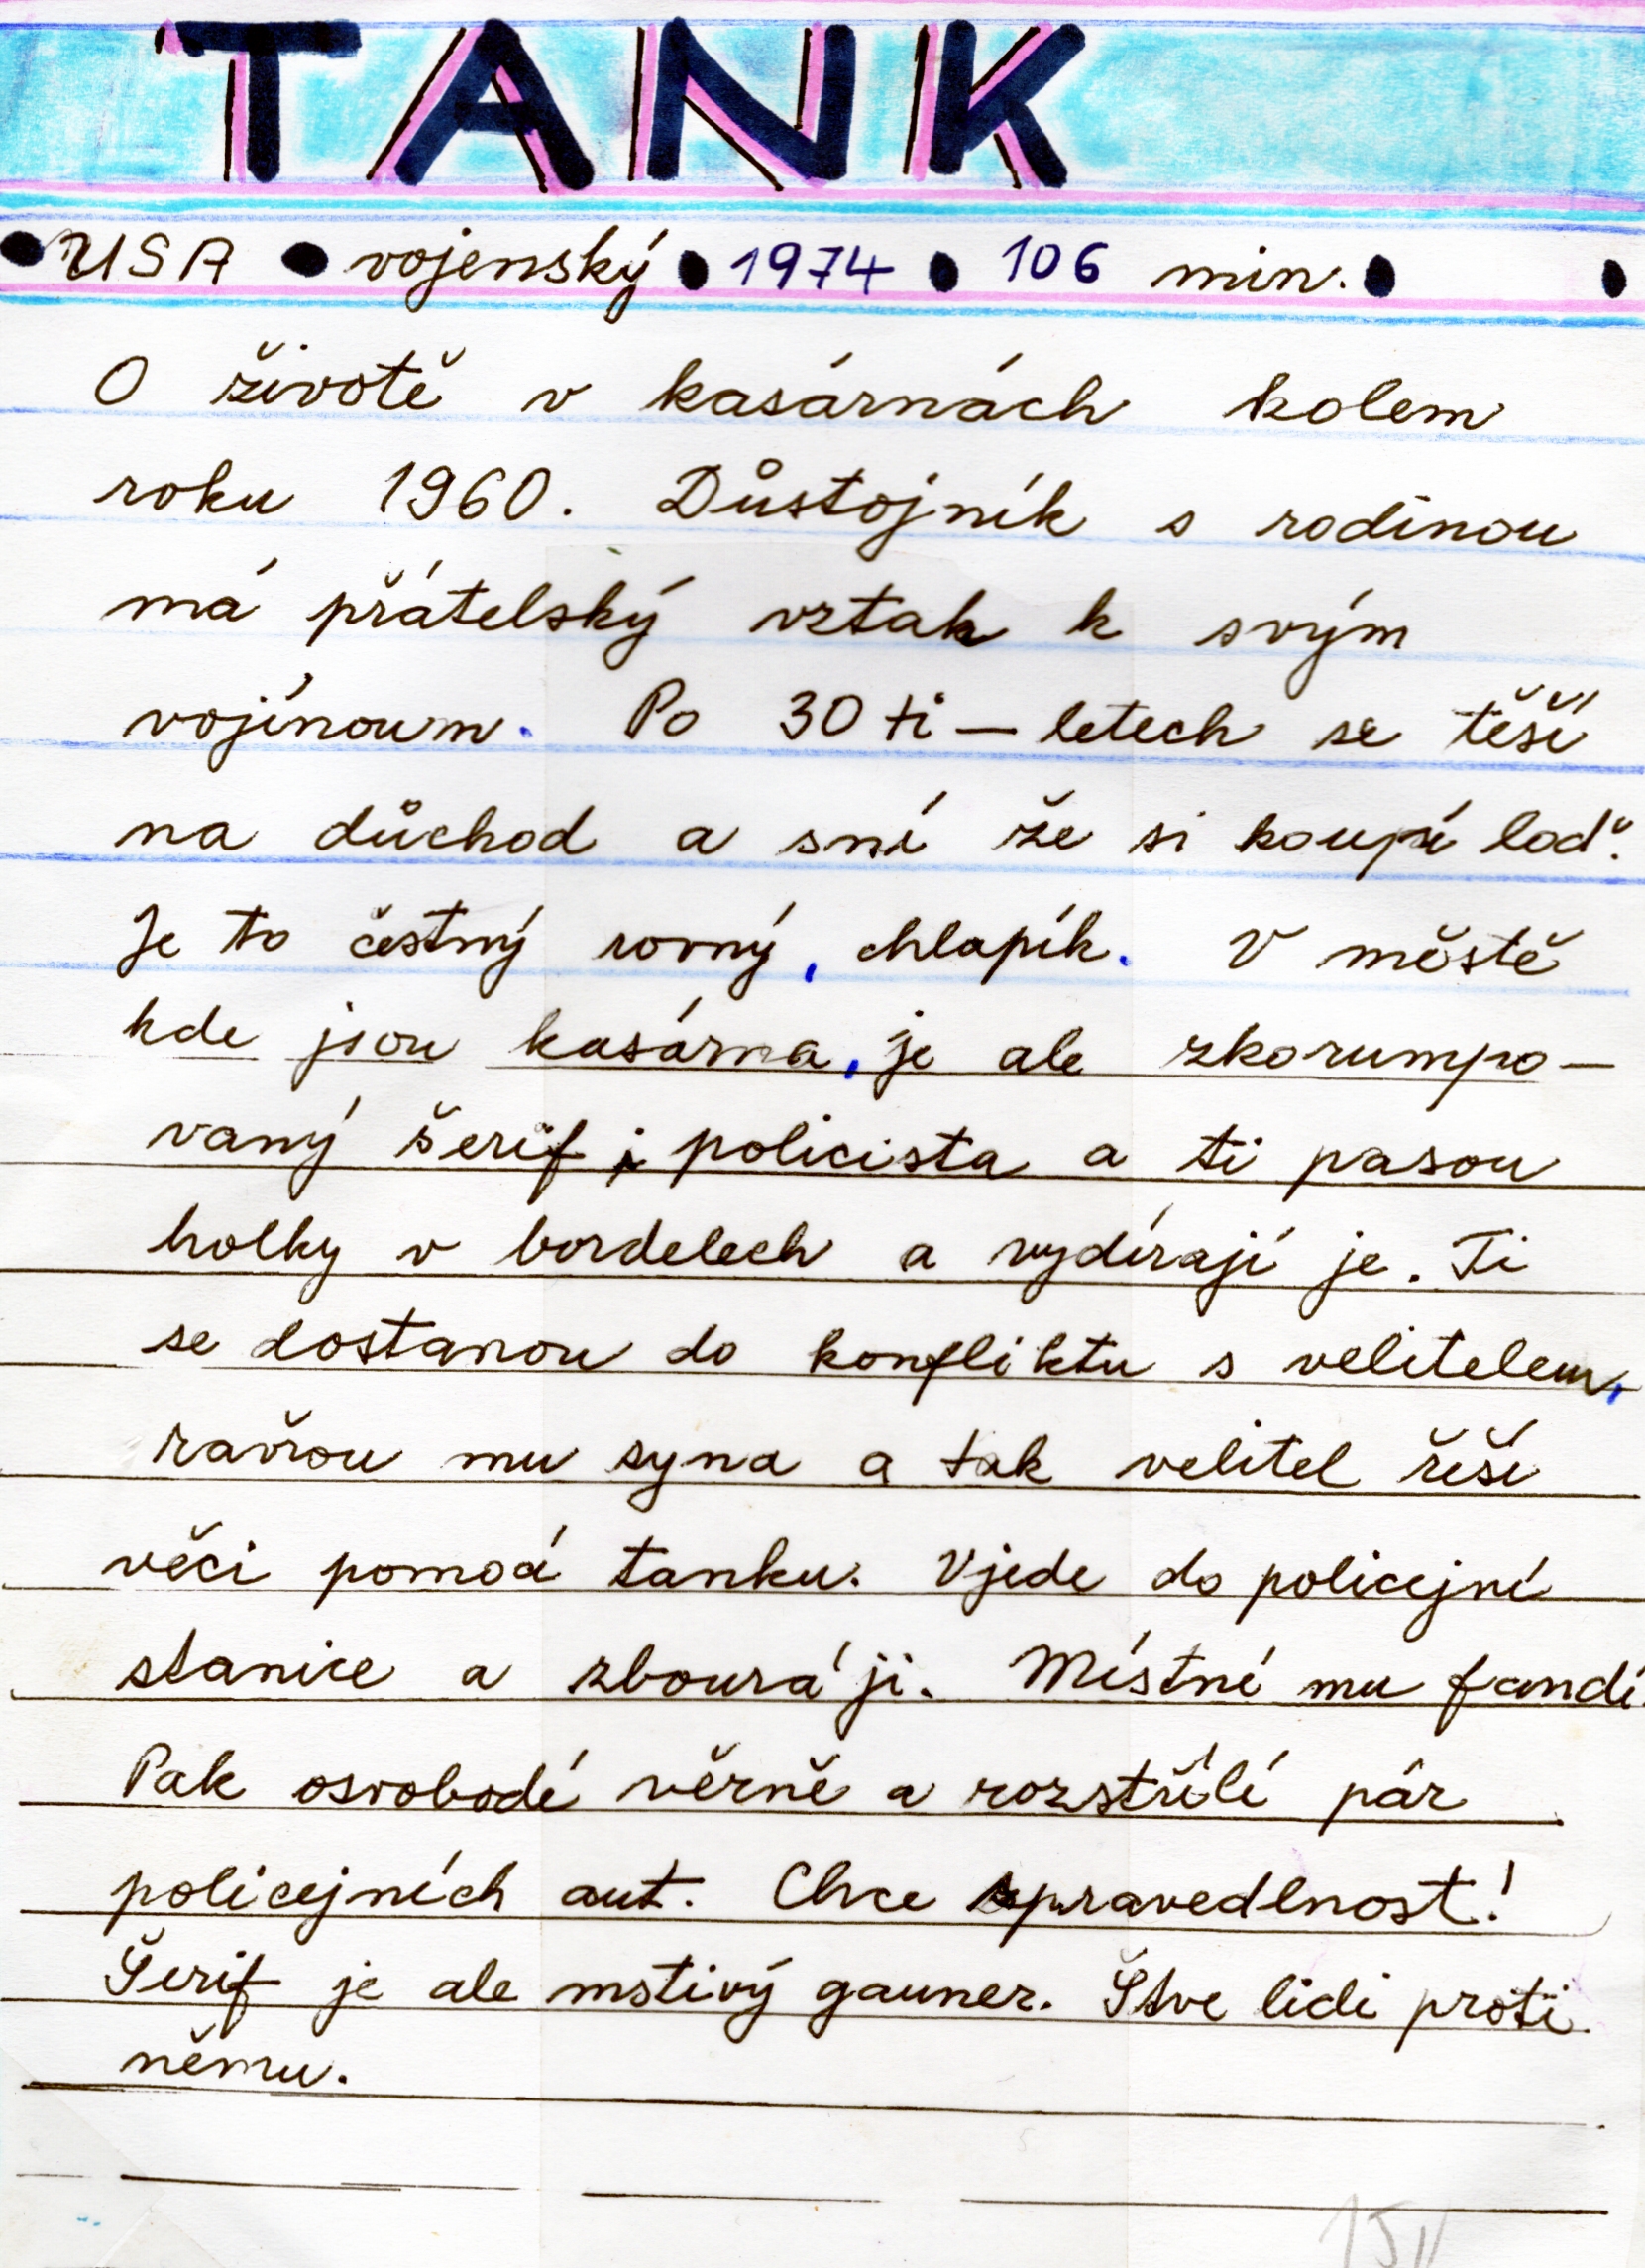 TANK
● USA ● vojenský ● 1974 ● 106 min. ● ●
O životě v kasárnách kolem
roku 1960. Důstojník s rodinou
má přátelský vztak k svým
vojínoum. Po 30 ti – letech se těší
na důchod a sní že si koupí loď.
Je to čestný rovný, chlapík. V městě
kde jsou kasárna, je ale zkorumpo-
vaný šerif i policista a ti pasou
holky v bordelech a vydírají je. Ti
se dostanou do konfliktu s velitelem,
zavřou mu syna a tak velitel řeší
věci pomocí tanku. Vjede do policejní
stanice a zbourá ji. Místní mu fandí.
Pak osvobodí věrně a rozstřílí pár
policejních aut. Chce spravedlnost!
Šerif je ale mstivý gauner. Štve lidi proti
němu.